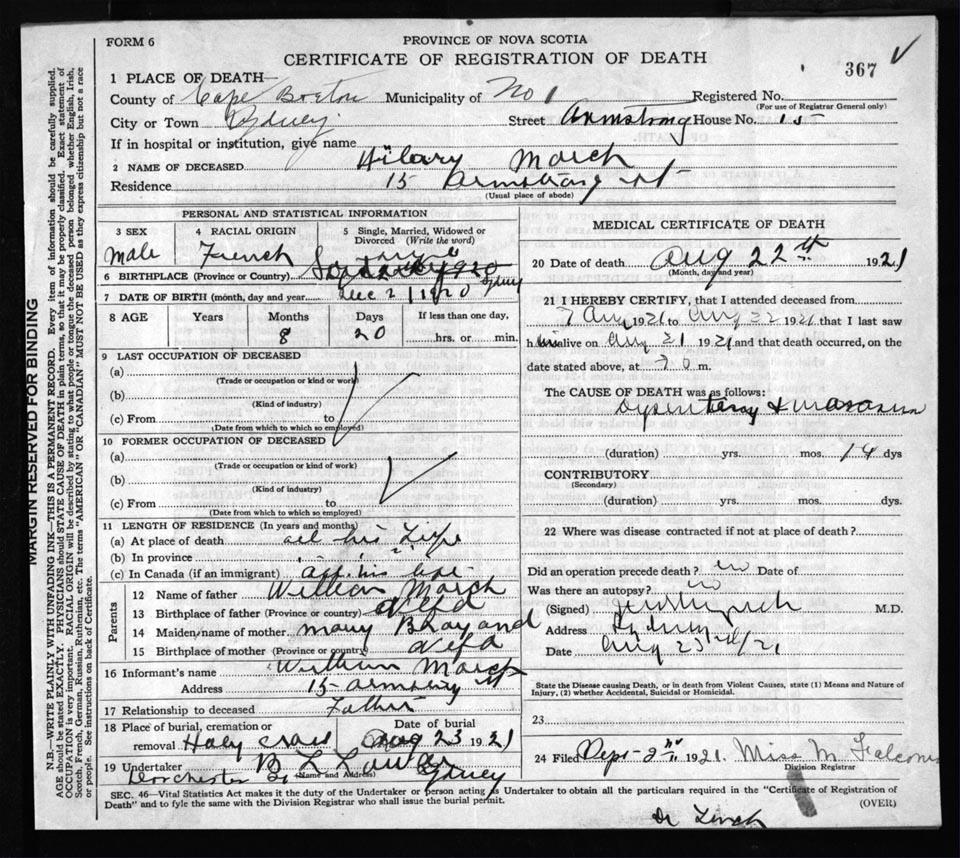 FORM 6
PROVINCE OF NOVA SCOTIA
CERTIFICATE OF REGISTRATION OF DEATH
367
1 PLACE OF DEATH
County of Cape Breton Municipality of No 1 Registered No.
(For use of Registrar General only)
City or Town Sydney Street Armstrong House No. 15
If in hospital or institution, give name
2 NAME OF DECEASED Hilary March
Residence 15 Armstrong st
(Usual place of abode)
PERSONAL AND STATISTICAL INFORMATION
3 SEX
male
4 RACIAL ORIGIN
French
5 Single, Married, Widowed or Divorced (Write the word)
6 BIRTHPLACE (Province or Country) Sydney
7 DATE OF BIRTH (month, day and year) Dec 2 1920
8 AGE Years Months Days If less than one day,
8 20 hrs. or min.
9 LAST OCCUPATION OF DECEASED
(a)
(Trade or occupation or kind or work)
(b)
(Kind of industry)
(c) From to
(Date from which to which so employed)
10 FORMER OCCUPATION OF DECEASED
(a)
(Trade or occupation or kind of work)
(b)
(Kind of industry)
(c) From to
(Date from which to which so employed)
11 LENGTH OF RESIDENCE (In years and months)
(a) At place of death all his Life
(b) In province " " "
(c) In Canada (if an immigrant) all his life
Parents
12 Name of father William March
13 Birthplace of father (Province or country) Nfld
14 Maiden name of mother Mary
15 Birthplace of mother (Province or country) Nfld
16 Informant's name William March
Address 15 st
17 Relationship to deceased Father
18 Place of burial, cremation or removal Holy Cross
Date of burial Aug 23 1921
19 Undertaker
(Name and Address)
Dorchester St Sydney
MEDICAL CERTIFICATE OF DEATH
20 Date of death Aug 22th 1921
(Month, day and year)
21 I HEREBY CERTIFY, that I attended deceased from
7 Aug 1921 to Aug 22 1921 that I last saw
him alive on Aug 21 1921 and that death occurred, on the
date stated above, at m.
The CAUSE OF DEATH was as follows:
Dysentery &
(duration) yrs. mos. 14 dys
CONTRIBUTORY
(Secondary)
(duration) yrs. mos. dys.
22 Where was disease contracted if not at place of death?
Did an operation precede death? no Date of
Was there an autopsy? no
(Signed) M.D.
Address Sydney
Date Aug 23rd/21
State the Disease causing Death, or in death from Violent Causes, state (1) Means and Nature of
Injury, (2) whether Accidental, Suicidal or Homicidal.
23
24 Filed Sept 2nd 1921. Miss M.
Division Registrar
SEC. 46—Vital Statistics Act makes it the duty of the Undertaker or person acting as Undertaker to obtain all the particulars required in the "Certificate of Registration of
Death" and to fyle the same with the Division Registrar who shall issue the burial permit.
(OVER)
Dr Lynch
MARGIN RESERVED FOR BINDING
N.B.—WRITE PLAINLY WITH UNFADING INK—THIS IS A PERMANENT RECORD. Every item of information should be carefully supplied.
AGE should be stated EXACTLY. PHYSICIANS should STATE CAUSE OF DEATH in plain terms, so that it may be properly classified. Exact statement of
OCCUPATION is very important. RACIAL ORIGIN will be described by stating to what people or tongue the deceased person belonged whether English, Irish,
Scotch, French, German, Russian, Ruthenian, etc. The terms "AMERICAN" OR "CANADIAN" MUST NOT BE USED as they express citizenship but not a race
or people. See instructions on back of Certificate.